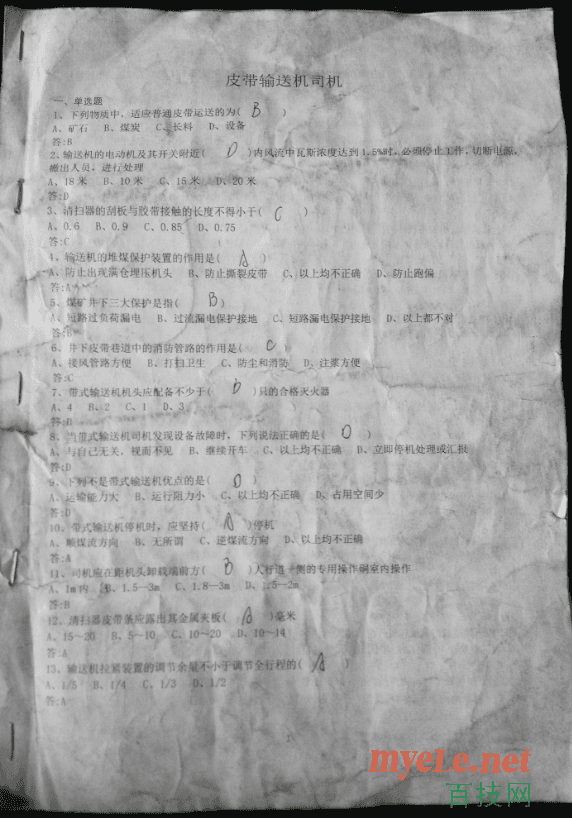 皮带输送机司机
一、单选题
1、下列物质中，适应普通皮带运送的为( B )
A、矿石 B、煤炭 C、长料 D、设备
答:B
2、输送机的电动机及其开关附近( D )内风流中瓦斯浓度达到1.5%时，必须停止工作，切断电源，
撤出人员，进行处理
A、18米 B、10米 C、15米 D、20米
答:D
3、清扫器的刮板与胶带接触的长度不得小于( C )
A、0.6 B、0.9 C、0.85 D、0.75
答:C
4、输送机的堆煤保护装置的作用是( A )
A、防止出现满仓埋压机头 B、防止撕裂皮带 C、以上均不正确 D、防止跑偏
答:A
5、煤矿井下三大保护是指( B )
A、短路过负荷漏电 B、过流漏电保护接地 C、短路漏电保护接地 D、以上都不对
答:B
6、井下皮带巷道中的消防管路的作用是( C )
A、接风管路方便 B、打扫卫生 C、防尘和消防 D、注浆方便
答:C
7、带式输送机机头应配备不少于( b )只的合格灭火器
A、4 B、2 C、1 D、3
答:B
8、当带式输送机司机发现设备故障时，下列说法正确的是( D )
A、与自己无关，视而不见 B、继续开车 C、以上均不正确 D、立即停机处理或汇报
答:D
9、下列不是带式输送机优点的是( D )
A、运输能力大 B、运行阻力小 C、以上均不正确 D、占用空间少
答:D
10、带式输送机停机时，应坚持( A )停机
A、顺煤流方向 B、无所谓 C、逆煤流方向 D、以上均不正确
答:A
11、司机应在距机头卸载端前方( B )人行道一侧的专用操作硐室内操作
A、1m内 B、1.5—3m C、1.8—3m D、1.5—2m
答:B
12、清扫器皮带条应露出其金属夹板( A )毫米
A、15~20 B、5~10 C、10~20 D、10~14
答:A
13、输送机拉紧装置的调节余量不小于调节全行程的( A )
A、1/5 B、1/4 C、1/3 D、1/2
答:A
1
myele.net
百技网